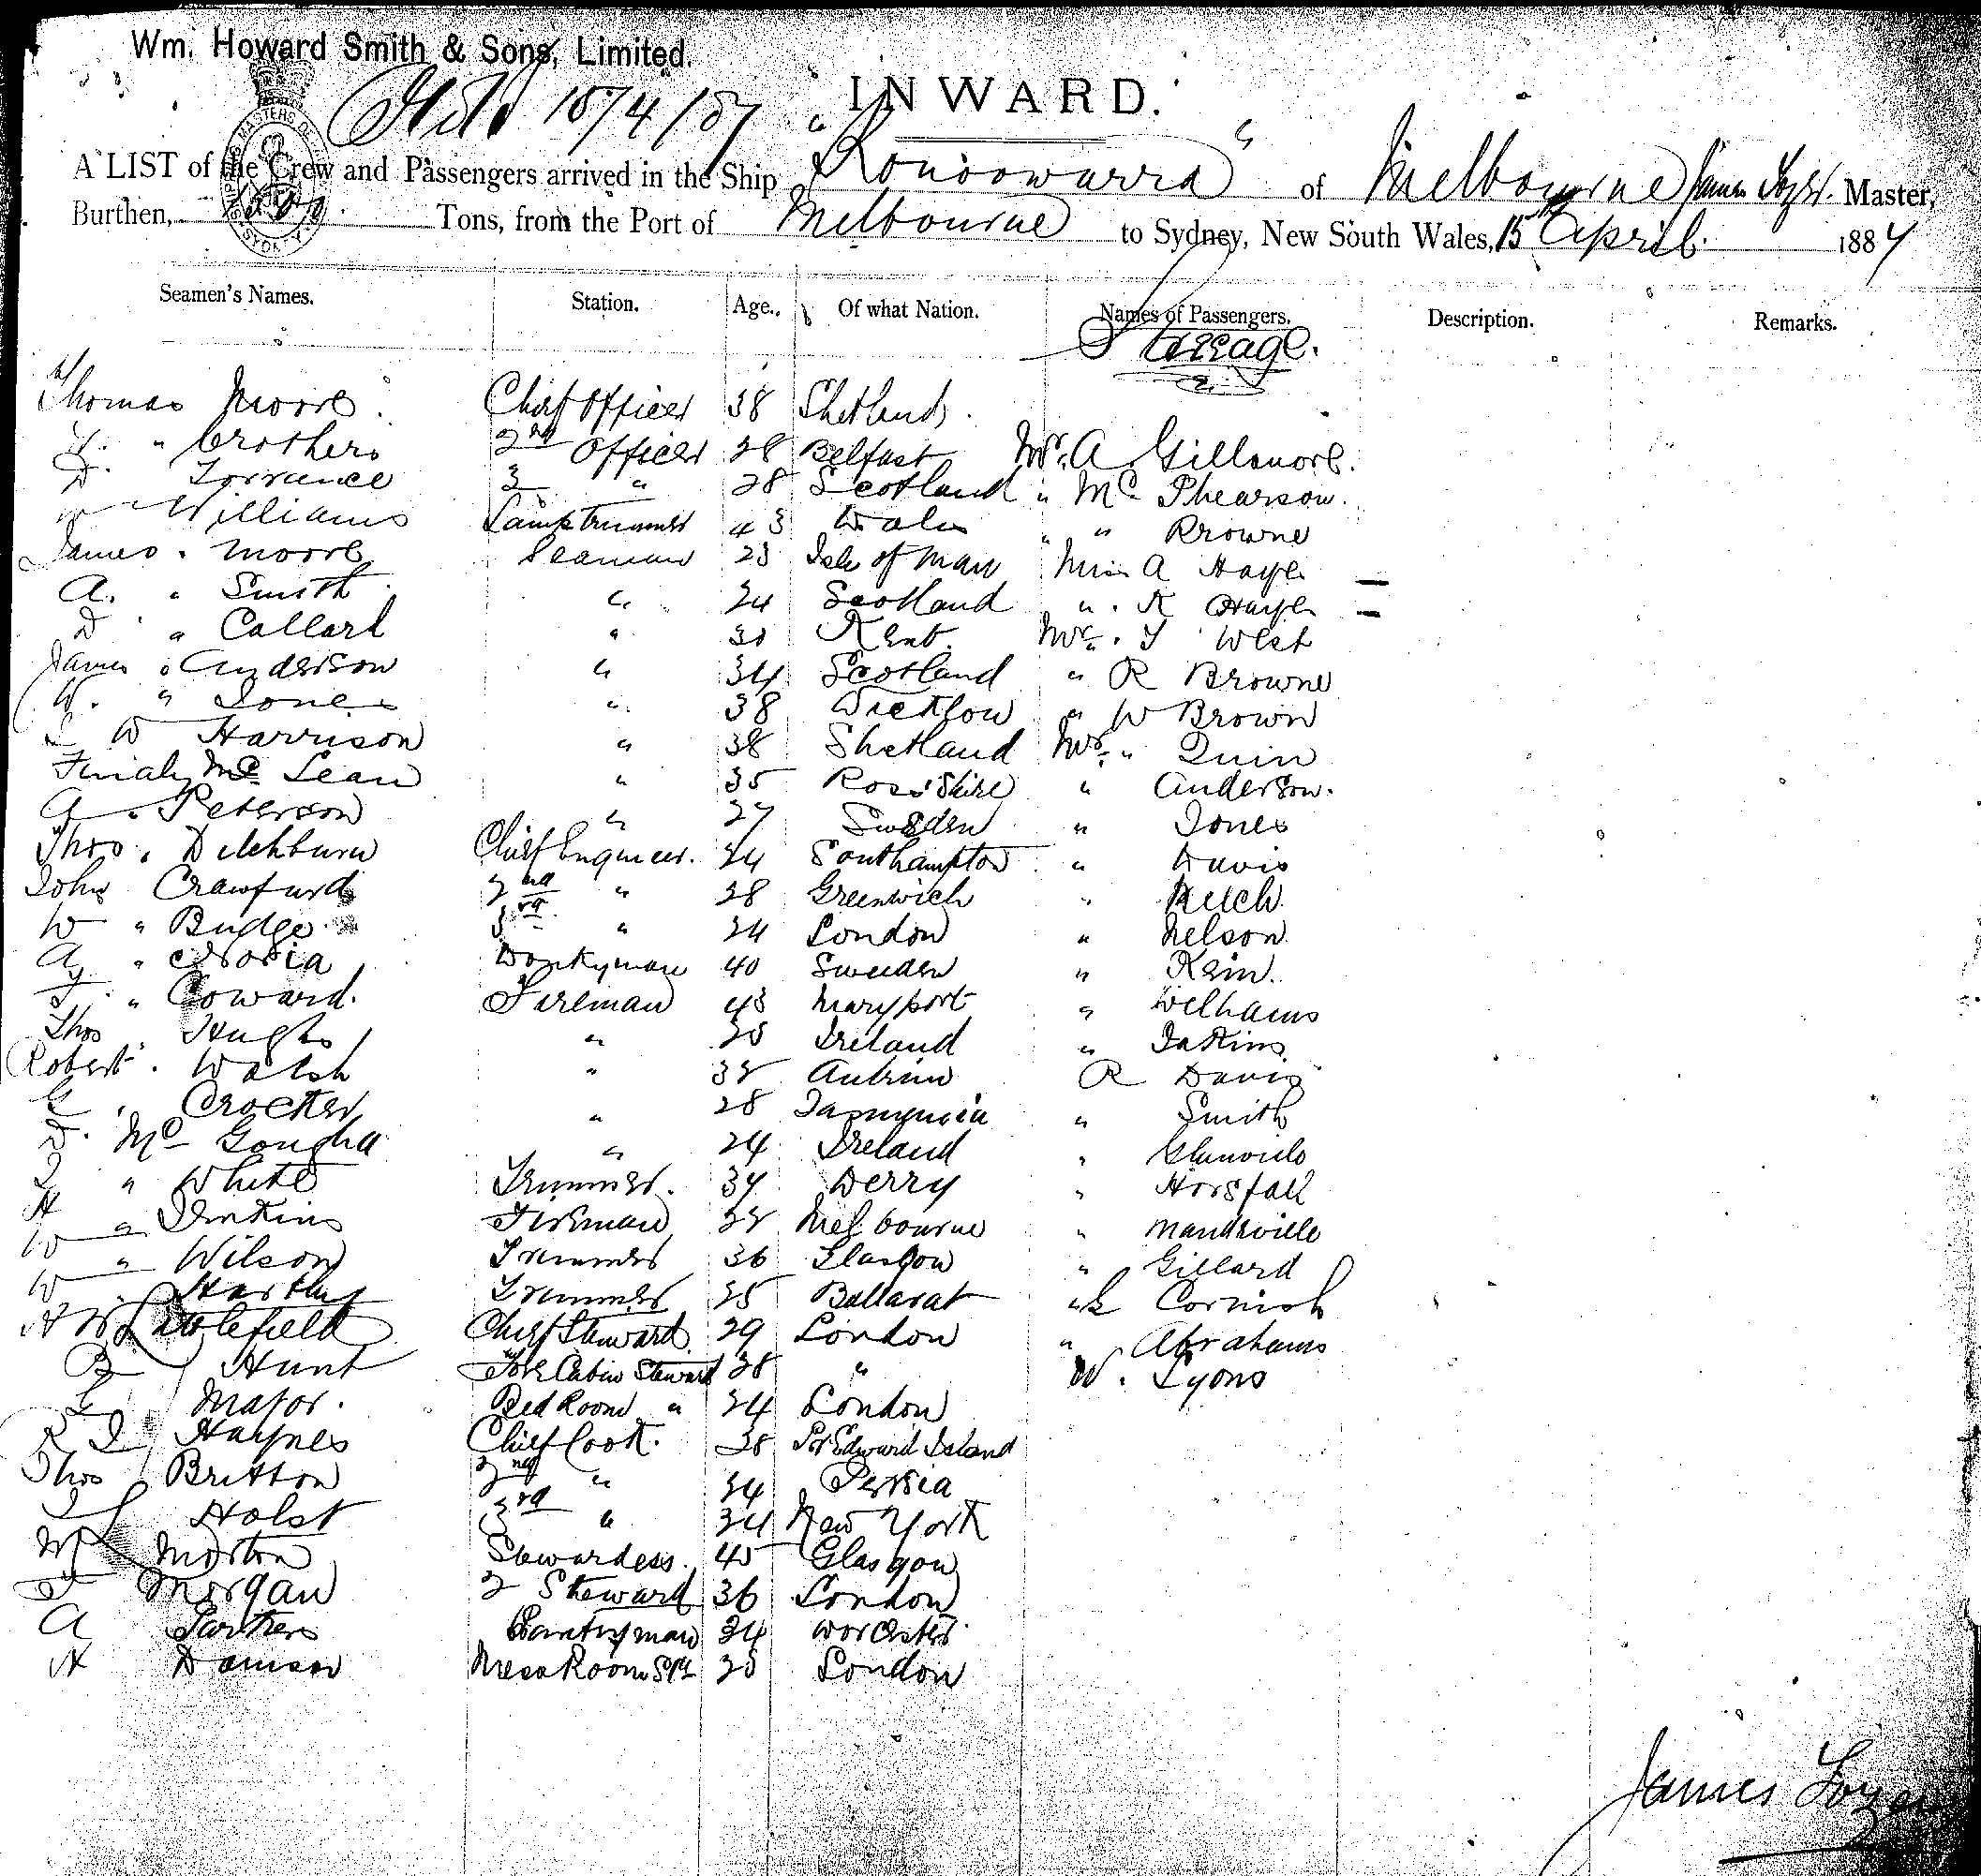 Wm. Howard Smith & Sons, Limited.
INWARD.
A LIST of the Crew and Passengers arrived in the Ship " Konoowarra " of Melbourne James Tozer Master,
Burthen, Tons, from the Port of Melbourne to Sydney, New South Wales, 15 April 1887
Seamen's Names. Station. Age. Of what Nation. Names of Passengers. Description. Remarks.
Steerage.
Thomas Moore Chief Officer 38 Shetland
" Crothers 2nd Officer 28 Belfast Mr. A Gillmore.
D. Torrance 3 " 28 Scotland " Mc Phearson.
Williams Lamptrimmer 43 Wales " " Browne
James Moore Seaman 23 Isle of Man Miss A Hayle
A. " Smith " 24 Scotland " K Hayle
D " Callard " 30 Kent Mr. T West
James " Anderson " 34 Scotland " R Browne
W. " Jones " 38 Wicklow " W Brown
W Harrison " 38 Shetland Mr. " Quin
Finialy Mc Lean " 35 Ross Shire " Anderson.
A. Peterson " 27 Sweden " Jones
Thos. Ditchburn Chief Engineer. 34 Southampton " Davis
John Crawfurd 2nd " 28 Greenwich "
W " Budge 3rd " 24 London " Nelson
A " Donkyman 40 Sweden " Kein.
" Coward. Fireman 43 Maryport " Welhams
Thos Hughs " 30 Ireland " Jakins
Robert Walsh " 38 Antrim R Davis
G Crocker " 28 Tasmania " Smith
D. Mc Gougha " 24 Ireland "
J " White Trimmer. 34 Derry " Horsfall
H " Jenkins Fireman 28 Melbourne " Mandeville
W " Wilson Trimmer 36 Glasgow " Gillard
W Hartley Trimmer 25 Ballarat " Cornish
H W Littlefield Chief Steward 29 London " Abrahams
B Hunt Fore Cabin Steward 28 " W. Lyons
Major. Bed Room " 24 London
R J Haynes Chief Cook. 38 Pr Edward Island
Thos Britton 2nd " 34 Persia
J Holst 3rd " 34 New York
M Morton Stewardess. 40 Glasgow
Morgan 2 Steward 36 London
A Pantryman 34 Worcester
H Davison Mess Room Std 20 London
James Tozer